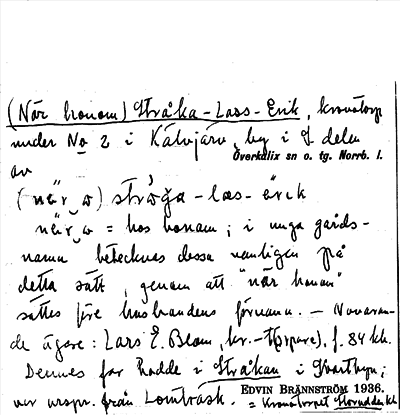 (När honom) Stråka-Lass-Erik, kronotorp
under No 2 i Kälvjärv, by i S delen
Överkalix sn o. tg. Norrb. l.
av
(när o) stråga-las-erik
när o = hos honom; i unga gårds-
namn betecknas dessa vanligen på
detta sätt, genom att "när honom"
sättes före husbondens förnamn. — Nuvaran-
de ägare: Lars E. Blom, kr.-torpare, f. 84 kh.
Dennes far bodde i Stråkan i Svartbyn;
var urspr. från Lomträsk. = Kronotorpet Storudden kh
EDVIN BRÄNNSTRÖM 1936.